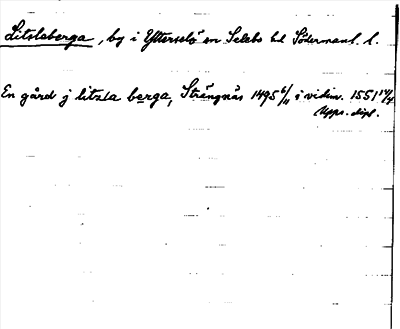 Litslaberga, by i Ytterselö sn Selebo hd Södermanl. l.
En gård j litzla berga, Strängnäs 1495 6/11 i vidim. 1551 17/4
Upps. dipl.